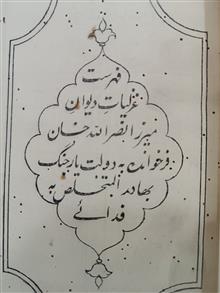 فهرست
غزلیات دیوان
میرزا نصر الله خان
فرخوانده به دولت یار جنگ
بهادر المتخلص به
فدائے